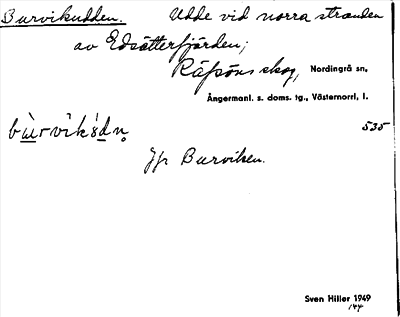 Burvikudden. Udde vid norra stranden
av Edsätterfjärden;
Räfsöns skog, Nordingrå sn,
Ångermanl. s. doms. tg., Västernorrl. l.
bu̲̇̀rvi̇̀k's̲d̲n̥ 535
Jfr Burviken.
Sven Hiller 1949
144